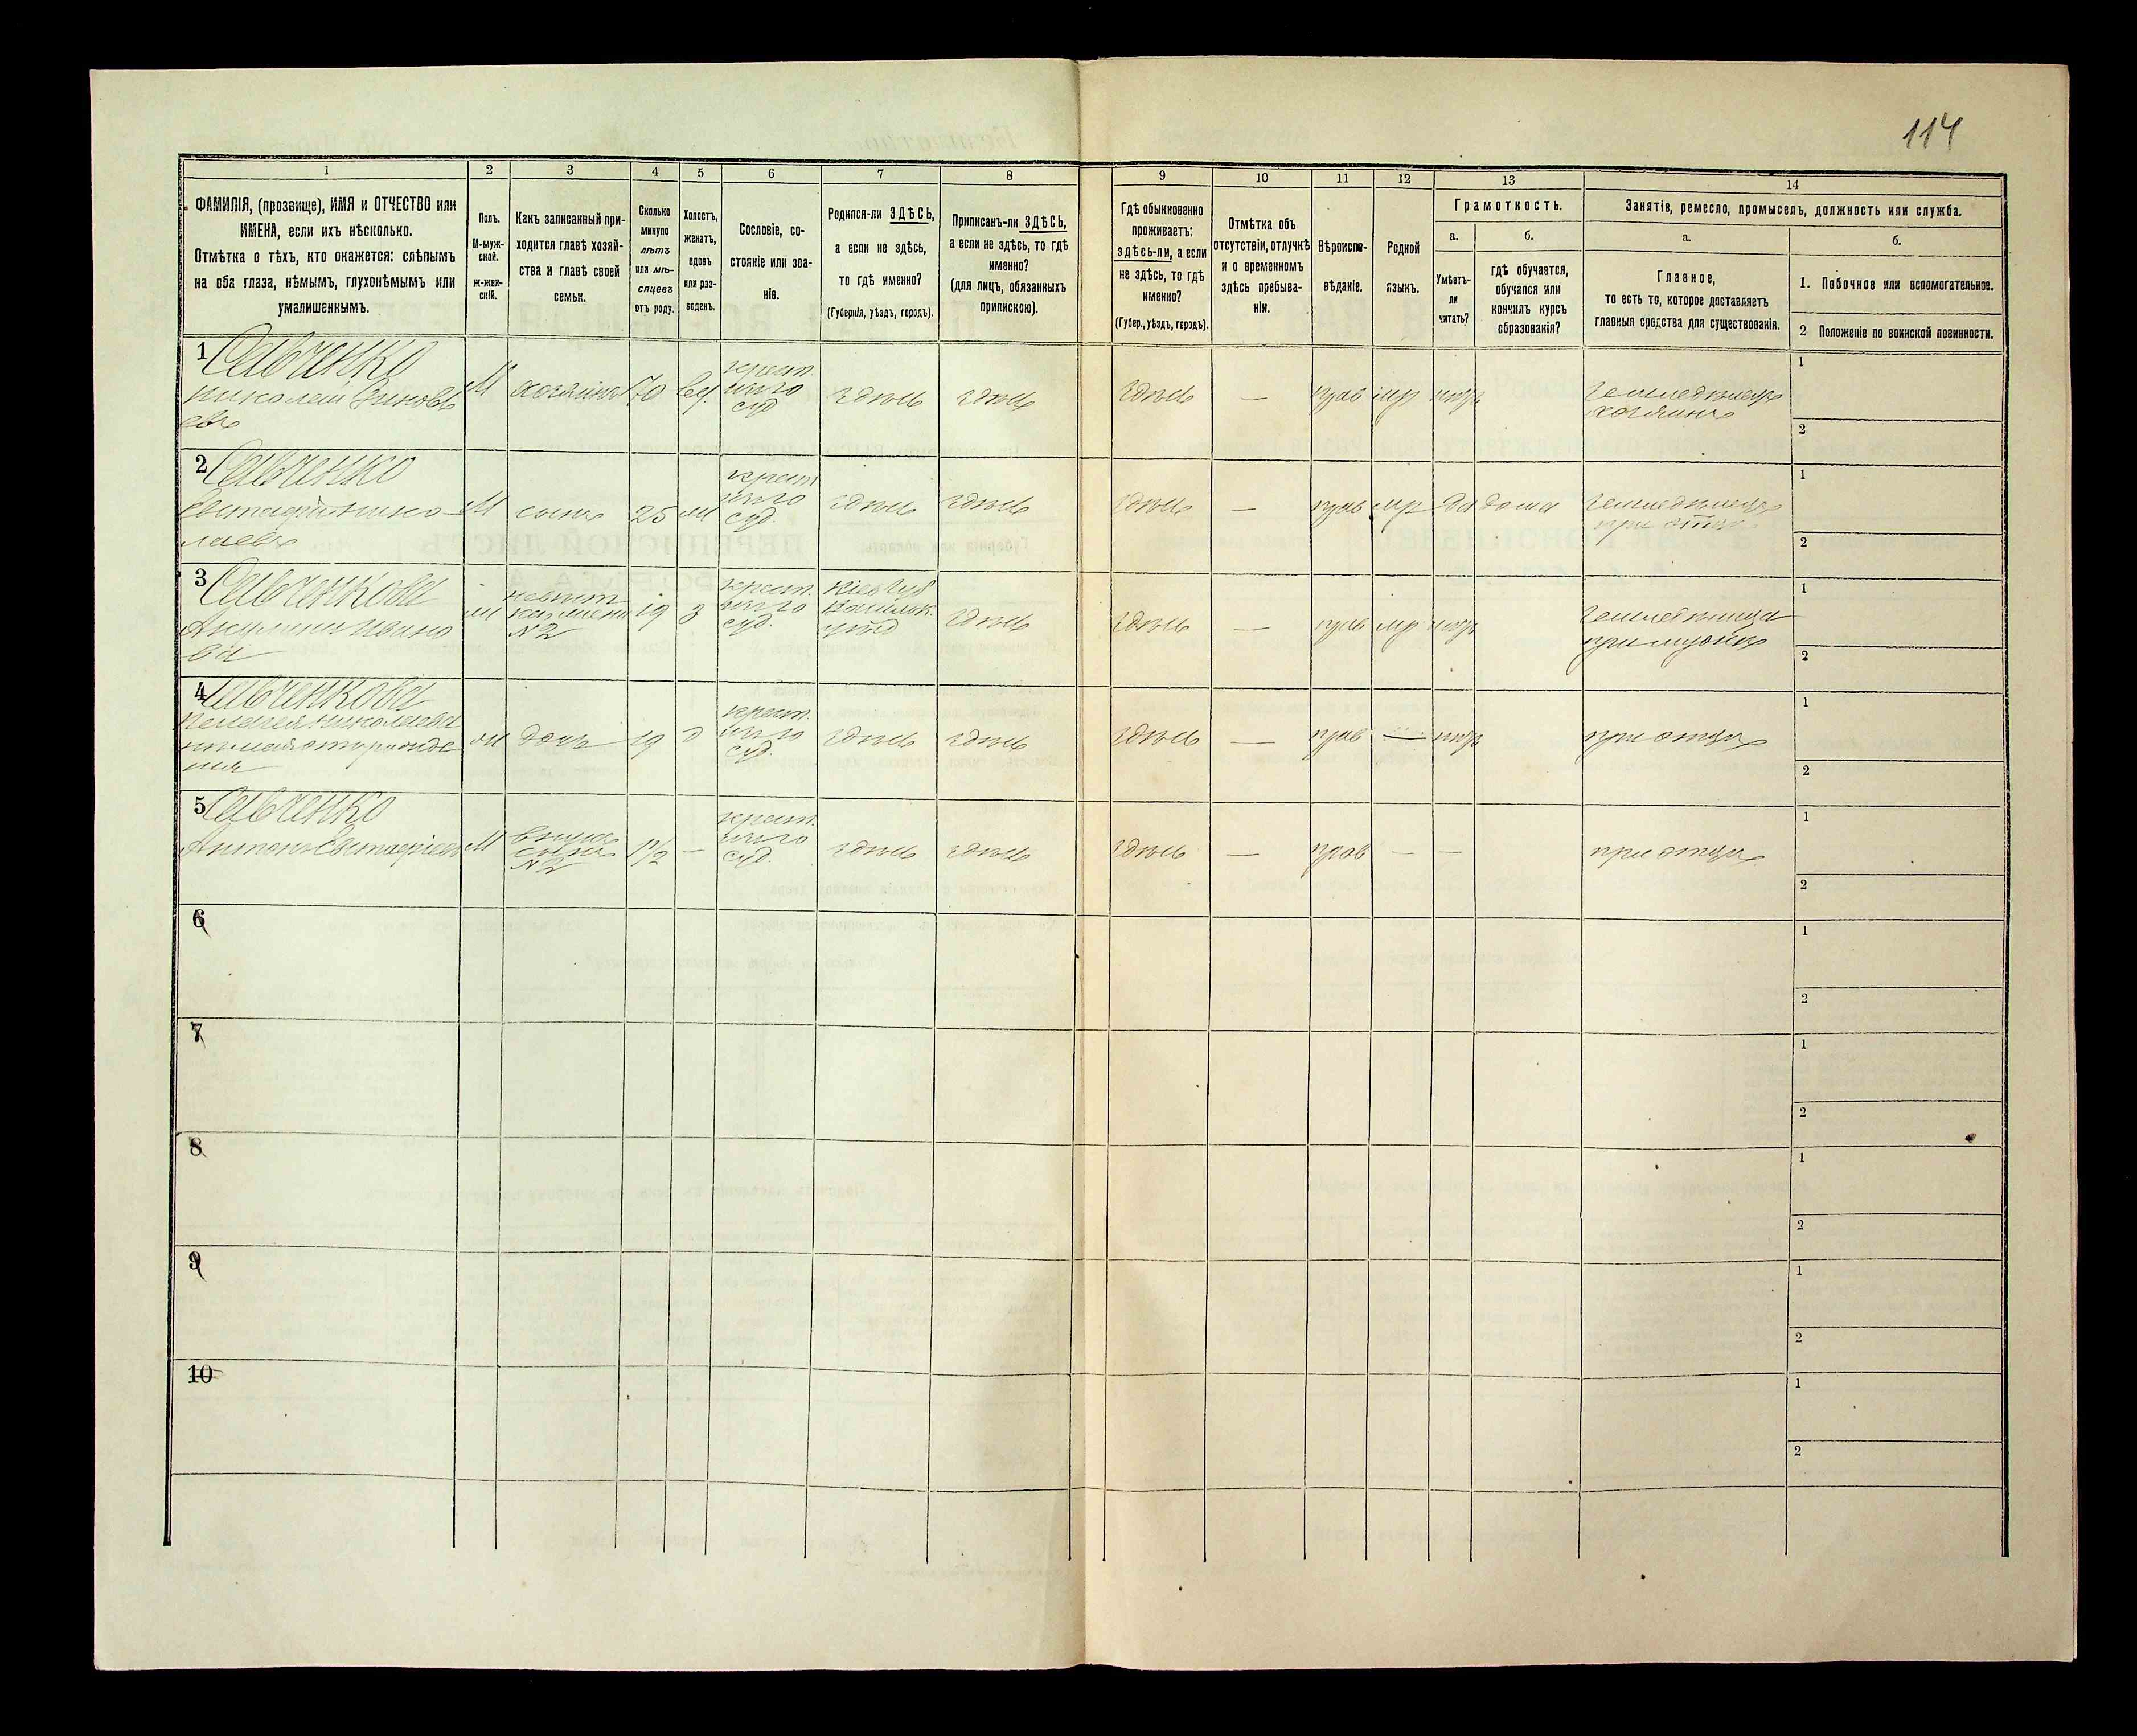 114
1 2 3 4 5 6 7 8 9 10 11 12 13 14
ФАМИЛІЯ, (прозвище), ИМЯ и ОТЧЕСТВО или
ИМЕНА, если ихъ нѣсколько.
Отмѣтка о тѣхъ, кто окажется: слѣпымъ
на оба глаза, нѣмымъ, глухонѣмымъ или
умалишеннымъ.
Полъ.
М-муж-
ской.
Ж-жен-
скій.
Какъ записанный при-
ходится главѣ хозяй-
ства и главѣ своей
семьи.
Сколько
минуло
лѣтъ
или мѣ-
сяцевъ
отъ роду.
Холостъ,
женатъ,
вдовъ
или раз-
веденъ.
Сословіе, со-
стояніе или зва-
ніе.
Родился-ли ЗДѢСЬ,
а если не здѣсь,
то гдѣ именно?
(Губернія, уѣздъ, городъ).
Приписанъ-ли ЗДѢСЬ,
а если не здѣсь, то гдѣ
именно?
(для лицъ, обязанныхъ
припискою).
Гдѣ обыкновенно
проживаетъ:
здѣсь-ли, а если
не здѣсь, то гдѣ
именно?
(Губер., уѣздъ, городъ).
Отмѣтка объ
отсутствіи, отлучкѣ
и о временномъ
здѣсь пребыва-
ніи.
Вѣроиспо-
вѣданіе.
Родной
языкъ.
Грамотность.
а.
Умѣетъ-
ли
читать?
б.
гдѣ обучается,
обучался или
кончилъ курсъ
образованія?
Занятія, ремесло, промыселъ, должность или служба.
а.
Главное,
то есть то, которое доставляетъ
главныя средства для существованія.
б.
1. Побочное или вспомогательное.
2 Положеніе по воинской повинности.
1 Савченко
Николай Зиновь
евъ
М
хозяинъ
70
вд.
крест.
суд
здѣсь
здѣсь
здѣсь
—
прав
мр
нѣтъ
земледѣлецъ
хозяинъ
1
2
2 Савченко
Евстафій Нико-
лаевъ
М
сынъ
25
крест
суд.
здѣсь
здѣсь
здѣсь
—
прав
мр
да
дома
земледѣлецъ
при отцѣ
1
2
3 Савченкова
Акулина Ивано
ва
невѣст
№2
19
з
крест.
суд.
Кіев губ
Васильк.
уѣзд
здѣсь
здѣсь
—
прав
мр
нѣтъ
земледѣлица
при мужѣ
1
2
4 Савченкова
Пелагея Николаева
нѣмая отъ рожде
нія
дочь
19
д
крест.
суд
здѣсь
здѣсь
здѣсь
—
прав
—
нѣтъ
при отцѣ
1
2
5 Савченко
Антонъ Евстафіевъ
М
внукъ
сынъ
№2
1½
—
крест.
суд.
здѣсь
здѣсь
здѣсь
—
прав
—
—
при отцѣ
1
2
6
1
2
7
1
2
8
1
2
9
1
2
10
1
2